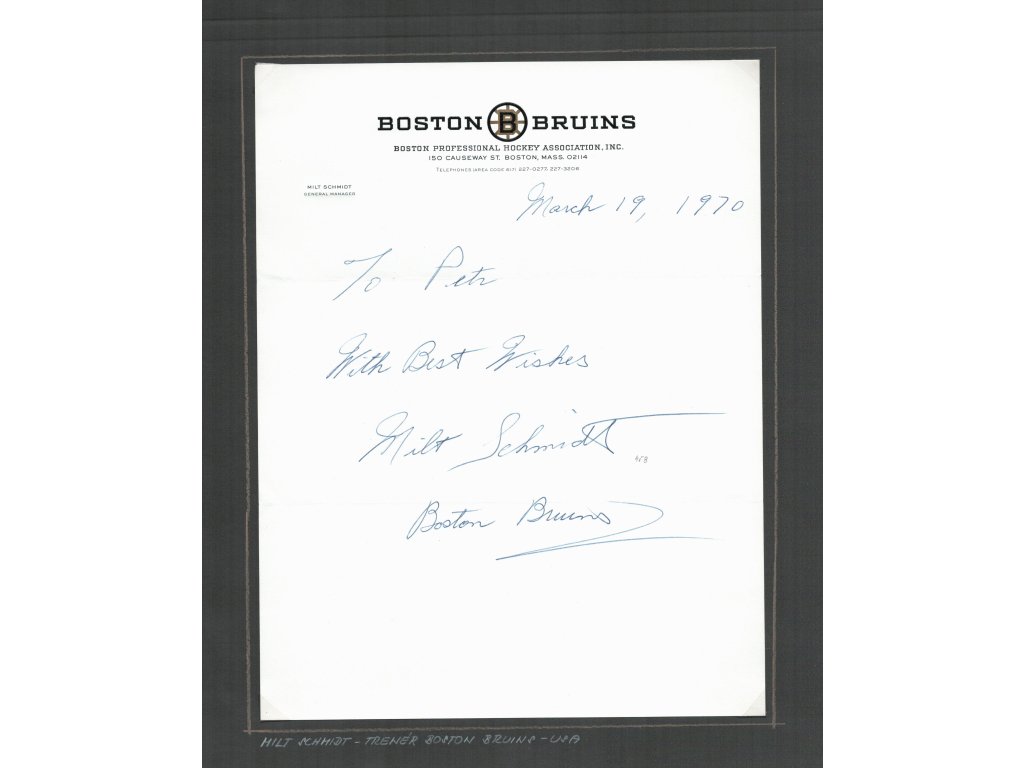 BOSTON B BRUINS
BOSTON PROFESSIONAL HOCKEY ASSOCIATION, INC.
150 CAUSEWAY ST. BOSTON, MASS. 02114
TELEPHONES (AREA CODE 617) 227-0277, 227-3206
MILT SCHMIDT
GENERAL MANAGER
March 19, 1970
To Petr
With Best Wishes
Milt Schmidt
Boston Bruins
MILT SCHMIDT - TRENÉR BOSTON BRUINS - USA